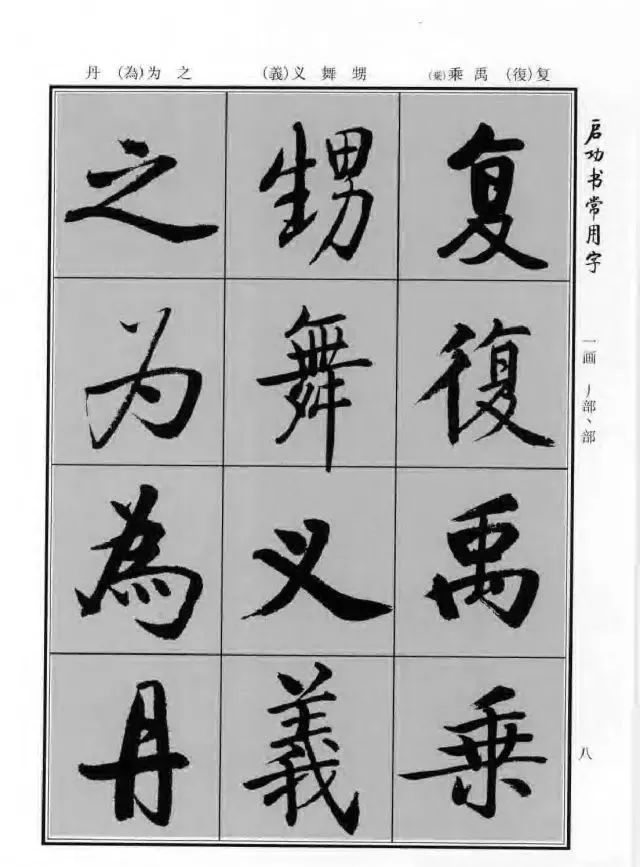 启功书常用字
一画 丿部丶部
八
复(復) 禹 乘
甥 舞 义(義)
之 为(為) 丹
复復禹乘
甥舞义義
之为為丹